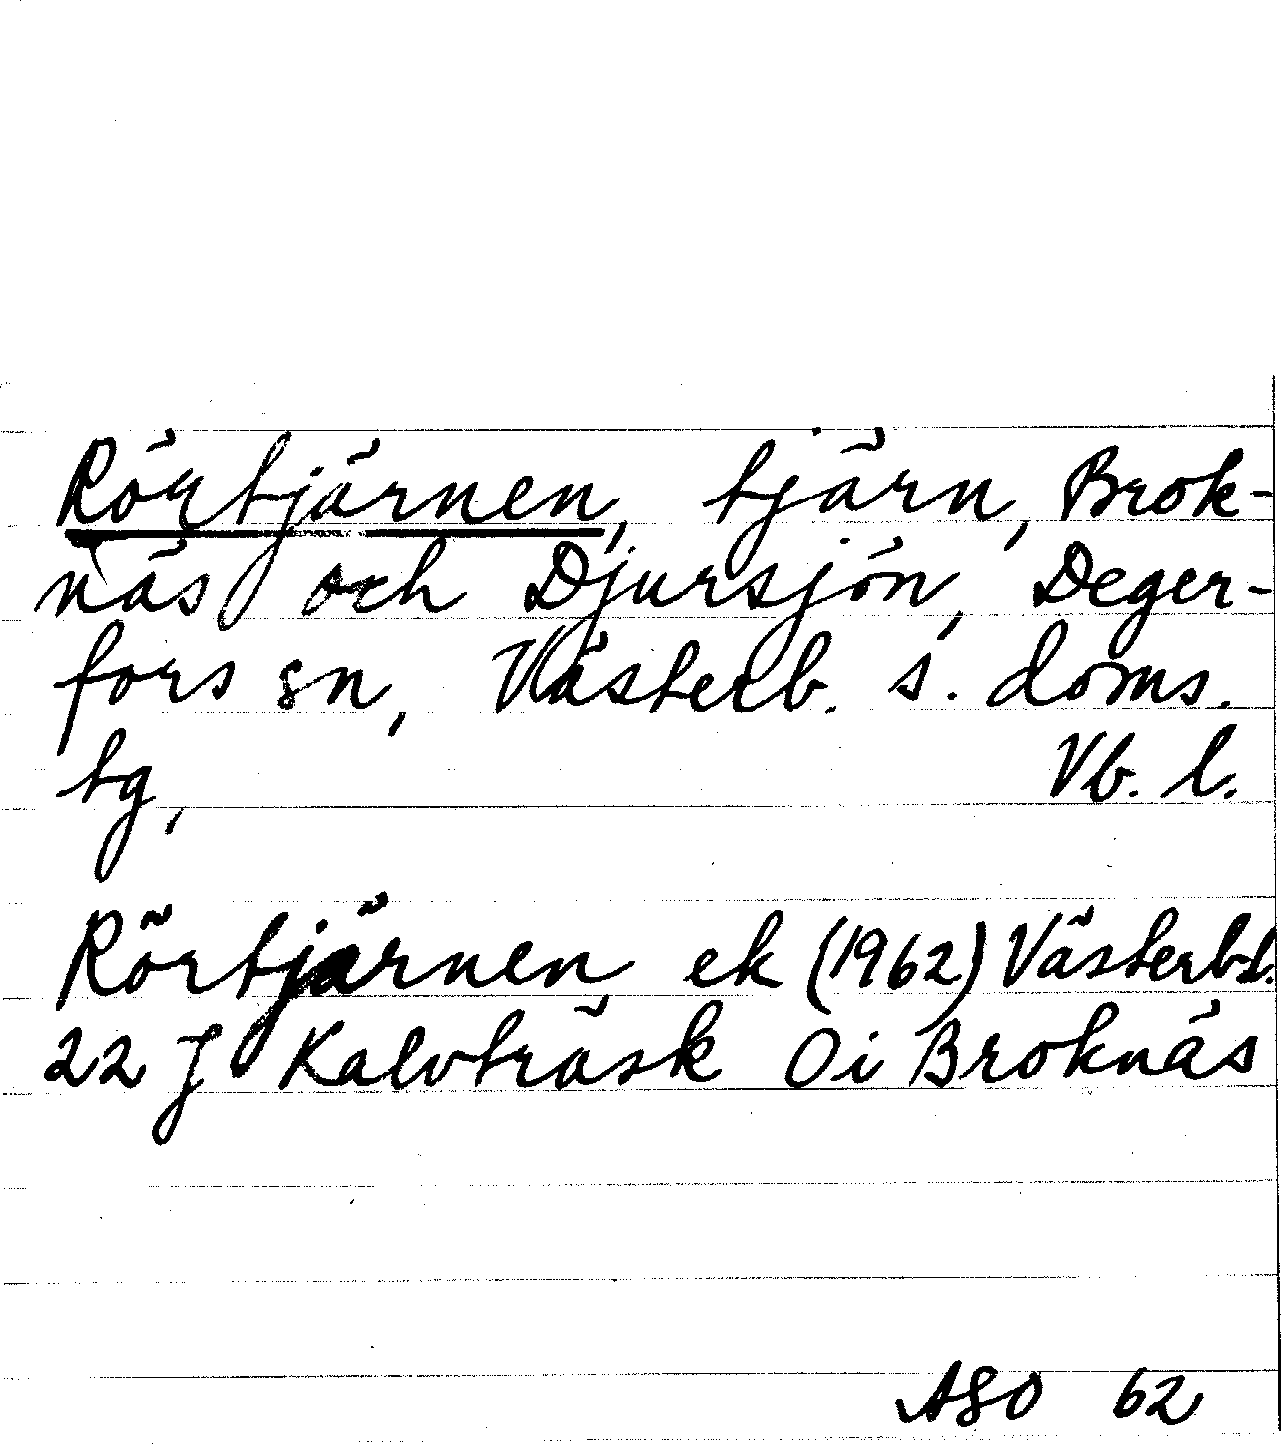 Rörtjärnen, tjärn, Brok-
näs och Djursjön, Deger-
fors sn, Västerb. s. doms.
tg, Vb. l.
Rörtjärnen ek (1962) Västerb.l.
22 J Kalvträsk Oi Broknäs
ASO 62